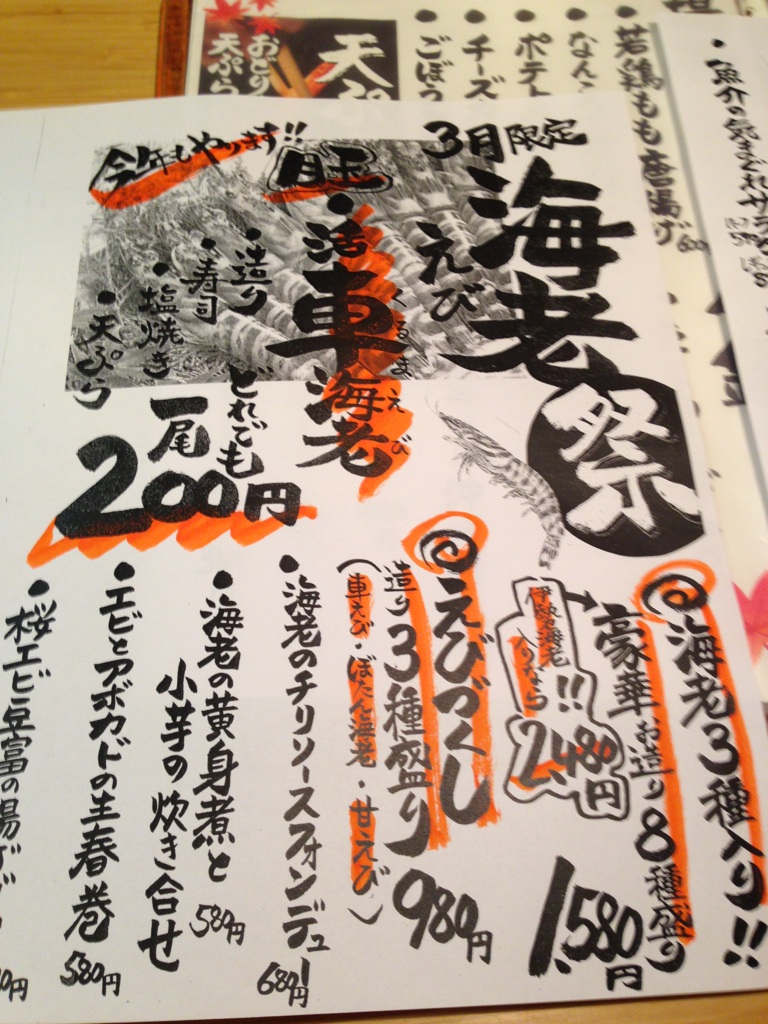 3月限定
海老祭
えび
今年もやります!!
旺
・活車海老
くるまえび
・造り
・寿司
・塩焼き
・天ぷら
どれでも
一尾
200円
海老3種入り!!
豪華お造り8種盛り
1,580円
伊勢海老
入りなら!!
2,480円
えびづくし
造り3種盛り
(車えび・ぼたん海老・甘えび)
980円
・海老のチリソースフォンデュ
680円
・海老の黄身煮と
小芋の炊き合せ
580円
・エビとアボカドの生春巻
580円
・桜エビ豆富の揚げ
天ぷ
おどり
天ぷら
・ごぼう
・チーズ
・ポテト
・なんこ
・若鶏もも唐揚げ
・魚介の気まぐれサラ